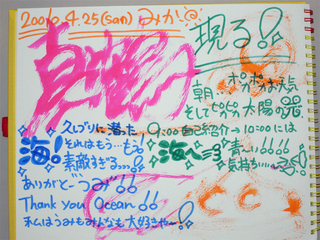 2010.4.25(sun)
現る!
朝… ポカポカお天気
そして 太陽の
久しぶりに潜った… 9:00 自己紹介→10:00には
海! それはもう…もう! 海へ=3 青ーい!
素敵すぎる… 気持ちいい〜
ありがと〜うみ
Thank you Ocean
私はうみもみんなも大好きや〜!